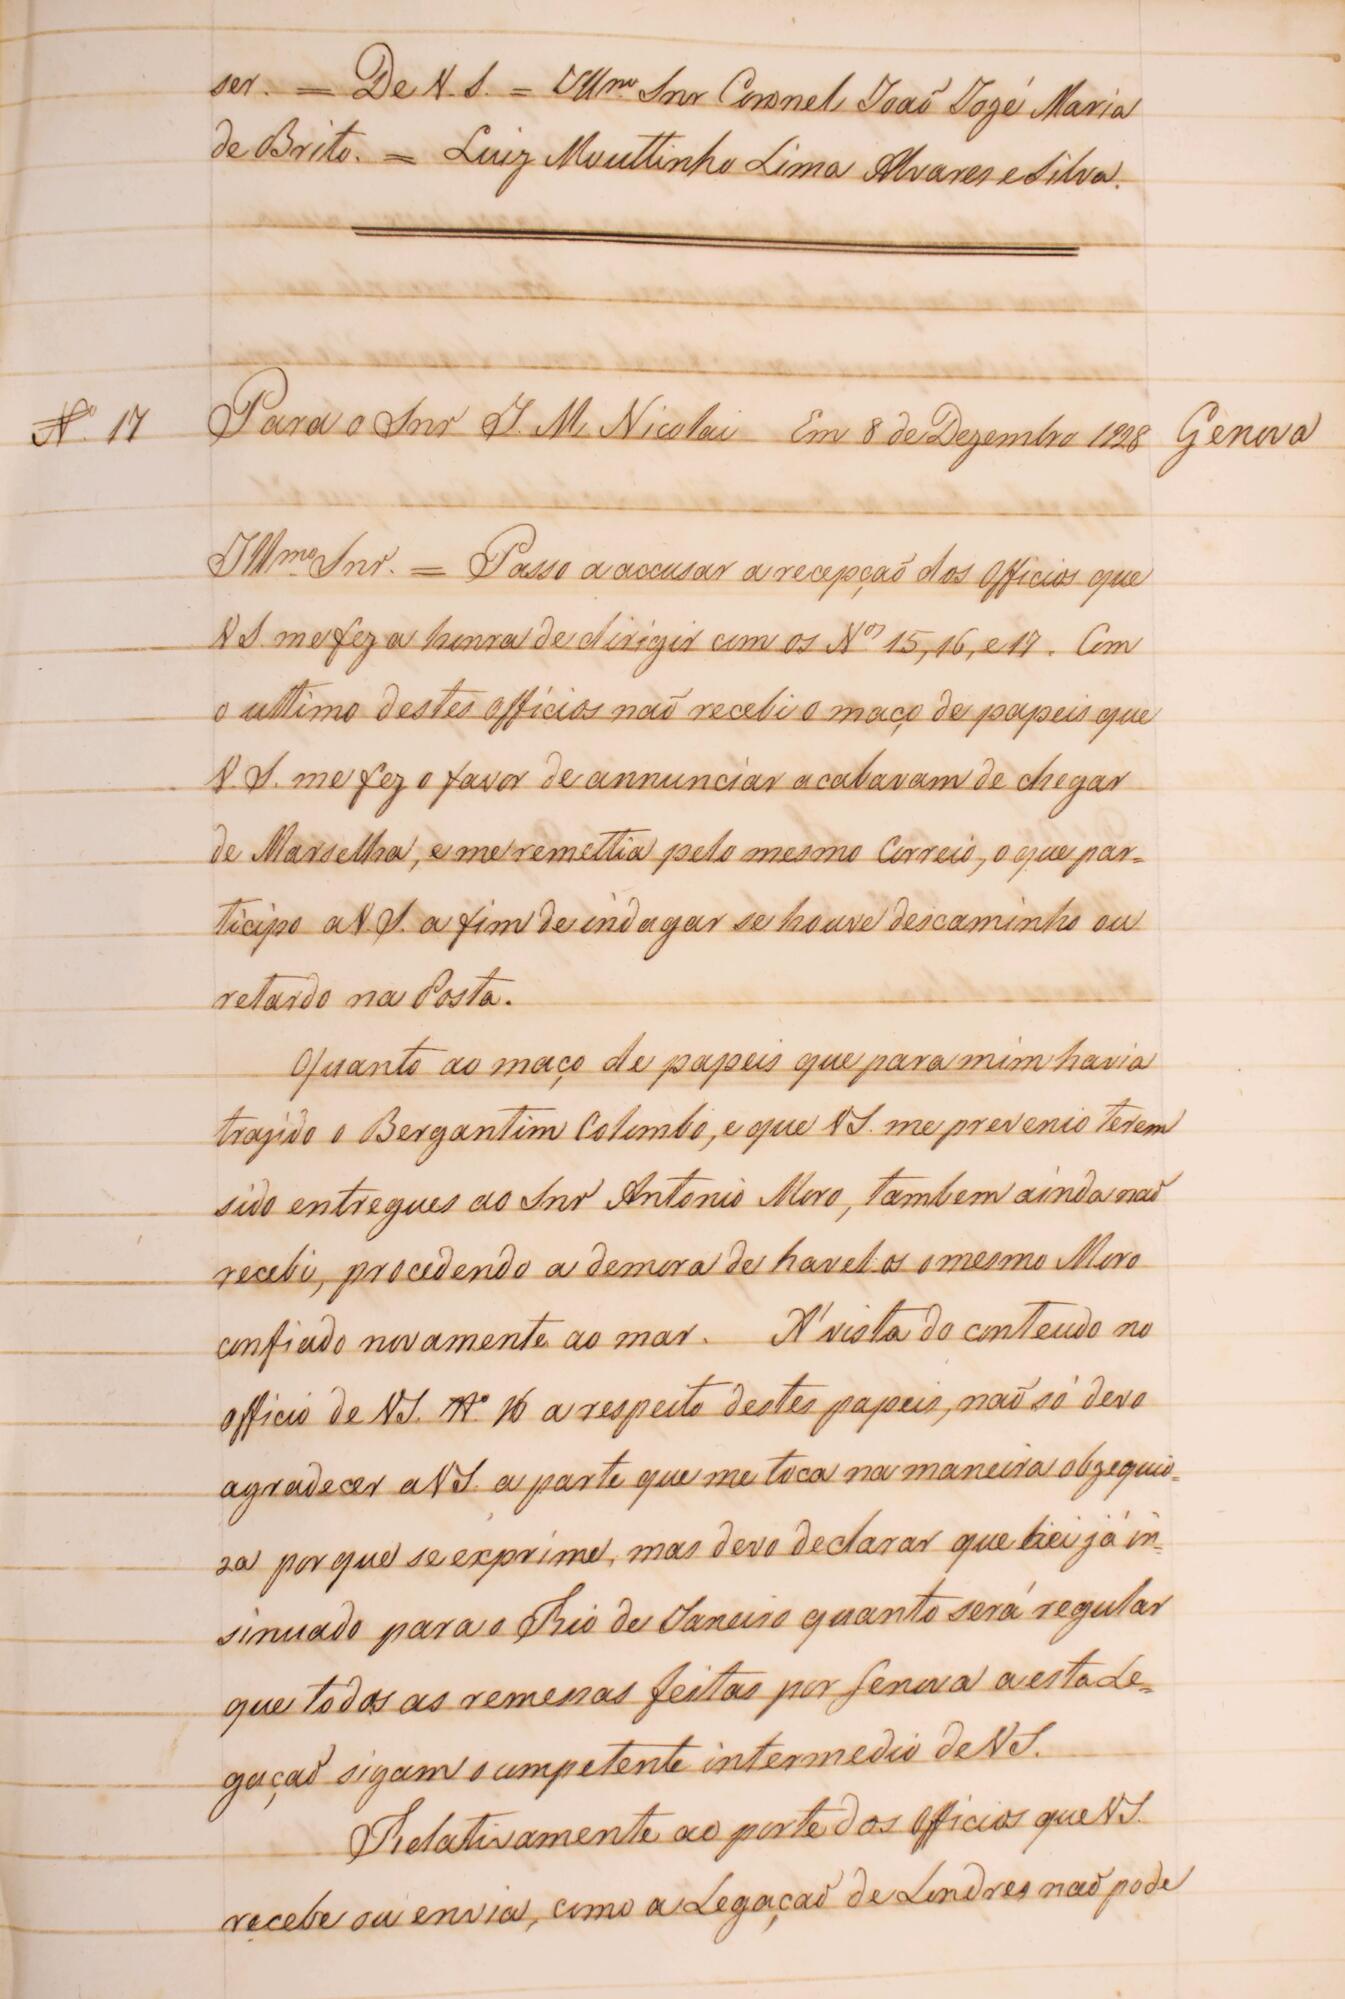 ser. = De V. S. = Illmo. Snr Coronel João Jozé Maria
de Brito. = Luiz Mouttinho Lima Alvares e Silva.
No. 17 Para o Snr J. M. Nicolai Em 8 de Dezembro 1828 Genova
Illmo. Snr. = Passo a accusar a recepção dos Officios que
V S. me fez a honra de dirigir com os Nos 15, 16, e 17. Com
o ultimo destes officios não recebi o maço de papeis que
V. S. me fez o favor de annunciar acabavam de chegar
de Marselha, e me remettia pelo mesmo Correio, o que par=
ticipo a V. S. a fim de indagar se houve descaminho ou
retardo na Posta.
Quanto ao maço de papeis que para mim havia
trazido o Bergantim Colombo, e que V S. me prevenio terem
sido entregues ao Snr Antonio Moro, tambem ainda não
recebi, procedendo a demora de havel os o mesmo Moro
confiado novamente ao mar. A' vista do conteudo no
officio de V S. No. 16 a respeito destes papeis, não só devo
agradecer a V S. a parte que me toca na maneira obzequio=
za porque se exprime, mas devo declarar que hei já in=
sinuado para o Rio de Janeiro quanto será regular
que todas as remessas feitas por Genova a esta Le=
gação sigam o competente intermedio de V S.
Relativamente ao porte dos Officios que V S.
recebe ou envia, como a Legação de Londres não pode